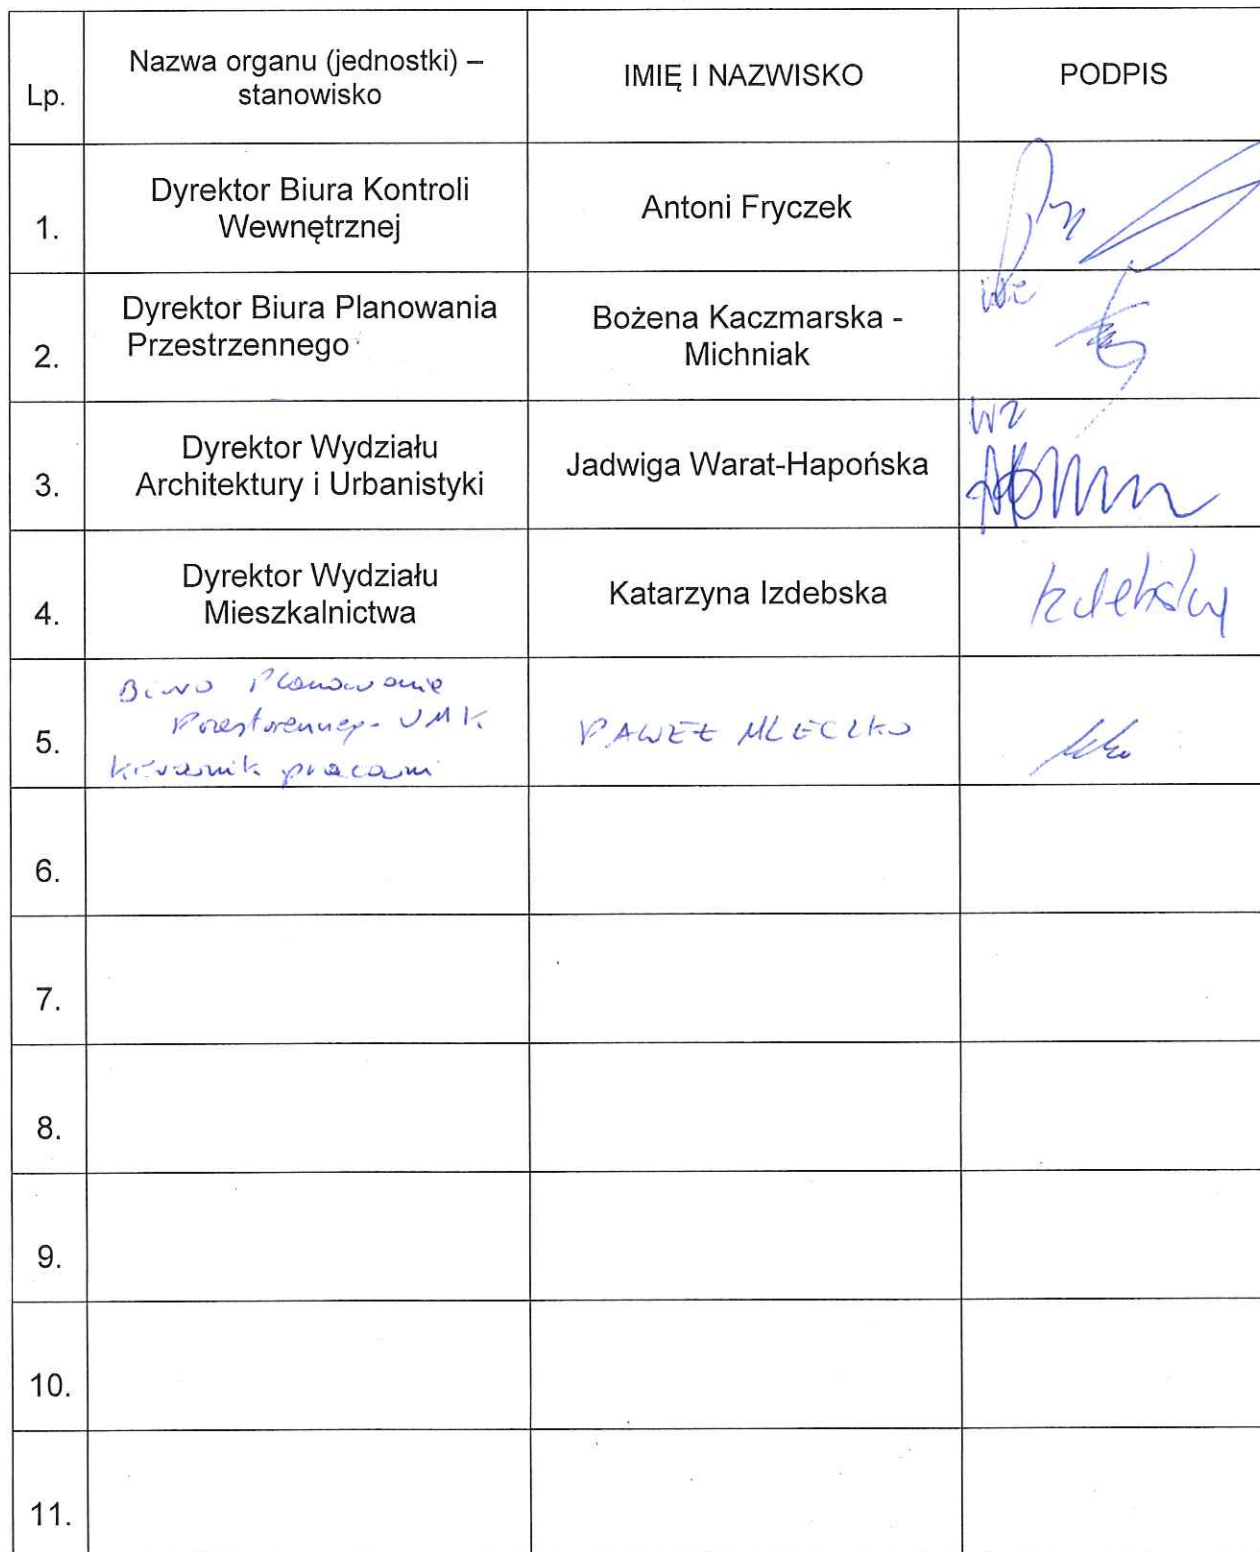 Lp.
Nazwa organu (jednostki) –
stanowisko
IMIĘ I NAZWISKO
PODPIS
1.
Dyrektor Biura Kontroli
Wewnętrznej
Antoni Fryczek
2.
Dyrektor Biura Planowania
Przestrzennego
Bożena Kaczmarska -
Michniak
3.
Dyrektor Wydziału
Architektury i Urbanistyki
Jadwiga Warat-Hapońska
WZ
4.
Dyrektor Wydziału
Mieszkalnictwa
Katarzyna Izdebska
Izdebska
5.
Biuro Planowania
Przestrzennego UMK
Kierownik pracowni
PAWEŁ MLECZKO
6.
7.
8.
9.
10.
11.